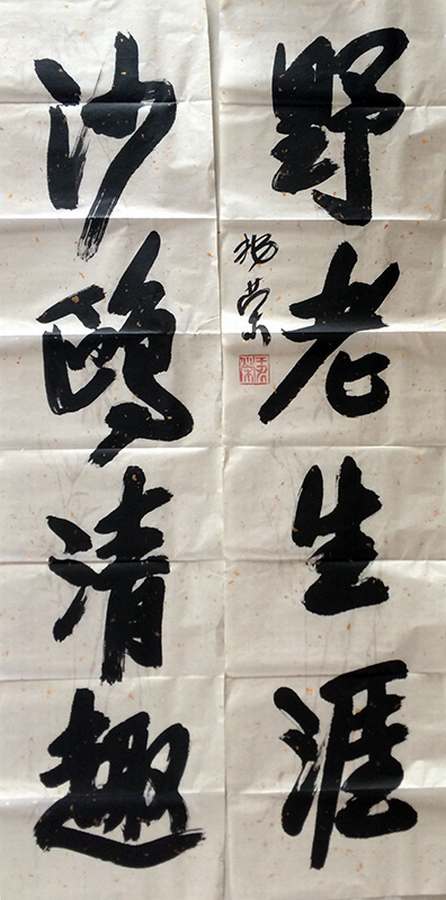 野老生涯
沙鸥清趣